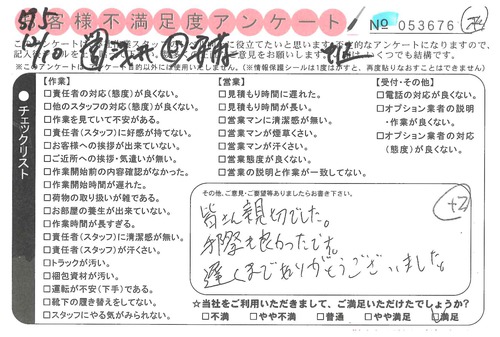 お客様不満足度アンケート
No 053676
【作業】
□責任者の対応(態度)が良くない。
□他のスタッフの対応(態度)が良くない。
□作業を見ていて不安がある。
□責任者(スタッフ)に好感が持てない。
□お客様への挨拶が出来ていない。
□ご近所への挨拶・気遣いが無い。
□作業開始前の内容確認がなかった。
□作業開始時間が遅れた。
□荷物の取り扱いが雑である。
□お部屋の養生が出来ていない。
□作業時間が長すぎる。
□責任者(スタッフ)に清潔感が無い。
□責任者(スタッフ)が汗くさい。
□トラックが汚い。
□梱包資材が汚い。
□運転が不安(下手)である。
□靴下の履き替えをしてない。
□スタッフにやる気がみられない。
【営業】
□見積もり時間に遅れた。
□見積もり時間が長い。
□営業マンに清潔感が無い。
□営業マンが煙草くさい。
□営業マンが汗くさい。
□営業態度が良くない。
□営業の説明と作業が一致してない。
【受付・その他】
□電話の対応が良くない。
□オプション業者の説明
・作業が良くない。
□オプション業者の対応
(態度)が良くない。
●チェックリスト
その他、ご意見・ご要望等ありましたらお書き下さい。
皆さん親切でした。
手際も良かったです。
遅くまでありがとうございました。
+2
☆当社をご利用いただきまして、ご満足いただけたでしょうか?
□不満 □やや不満 □普通 □やや満足 □満足